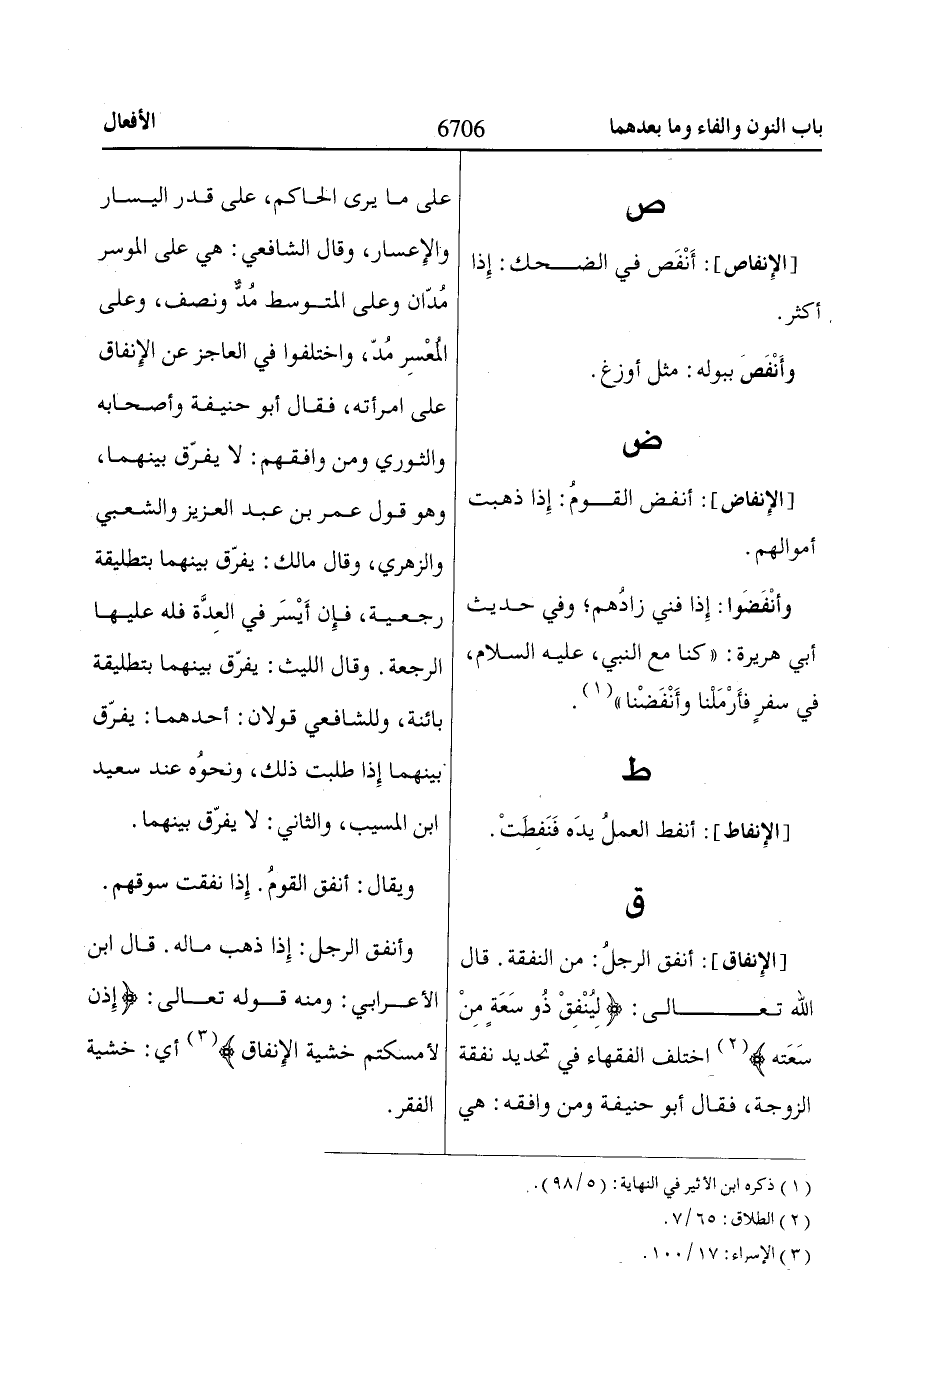 باب النون والفاء وما بعدهما
6706
الأفعال
ص
[الإنفاص]: أَنْفَص في الضحك: إذا
أكثر.
وأَنْفَصَ ببوله: مثل أوزغ.
ض
[الإنفاض]: أنفض القومُ: إذا ذهبت
أموالهم.
وأَنْفَضَوا: إذا فني زادُهم؛ وفي حديث
أبي هريرة: «كنا مع النبي، عليه السلام،
في سفرٍ فأَرْمَلْنا وأَنْفَضْنا»(١).
ط
[الإنفاط]: أنفط العملُ يدَه فَنَفِطَتْ.
ق
[الإنفاق]: أنفق الرجلُ: من النفقة. قال
الله تعالى: ﴿لِيُنْفِقْ ذُو سَعَةٍ مِنْ
سَعَتِه﴾(٢) اختلف الفقهاء في تحديد نفقة
الزوجة، فقال أبو حنيفة ومن وافقه: هي
على ما يرى الحاكم، على قدر اليسار
والإعسار، وقال الشافعي: هي على الموسر
مُدّان وعلى المتوسط مُدٌّ ونصف، وعلى
المُعْسِر مُدّ، واختلفوا في العاجز عن الإنفاق
على امرأته، فقال أبو حنيفة وأصحابه
والثوري ومن وافقهم: لا يفرّق بينهما،
وهو قول عمر بن عبد العزيز والشعبي
والزهري، وقال مالك: يفرّق بينهما بتطليقة
رجعية، فإن أَيْسَر في العدَّة فله عليها
الرجعة. وقال الليث: يفرّق بينهما بتطليقة
بائنة، وللشافعي قولان: أحدهما: يفرّق
بينهما إذا طلبت ذلك، ونحوُه عند سعيد
ابن المسيب، والثاني: لا يفرّق بينهما.
ويقال: أنفق القومُ. إذا نفقت سوقهم.
وأنفق الرجل: إذا ذهب ماله. قال ابن
الأعرابي: ومنه قوله تعالى: ﴿إذن
لأمسكتم خشية الإنفاق﴾(٣) أي: خشية
الفقر.
(١) ذكره ابن الأثير في النهاية: (٩٨/٥).
(٢) الطلاق: ٧/٦٥.
(٣) الإسراء: ١٠٠/١٧.